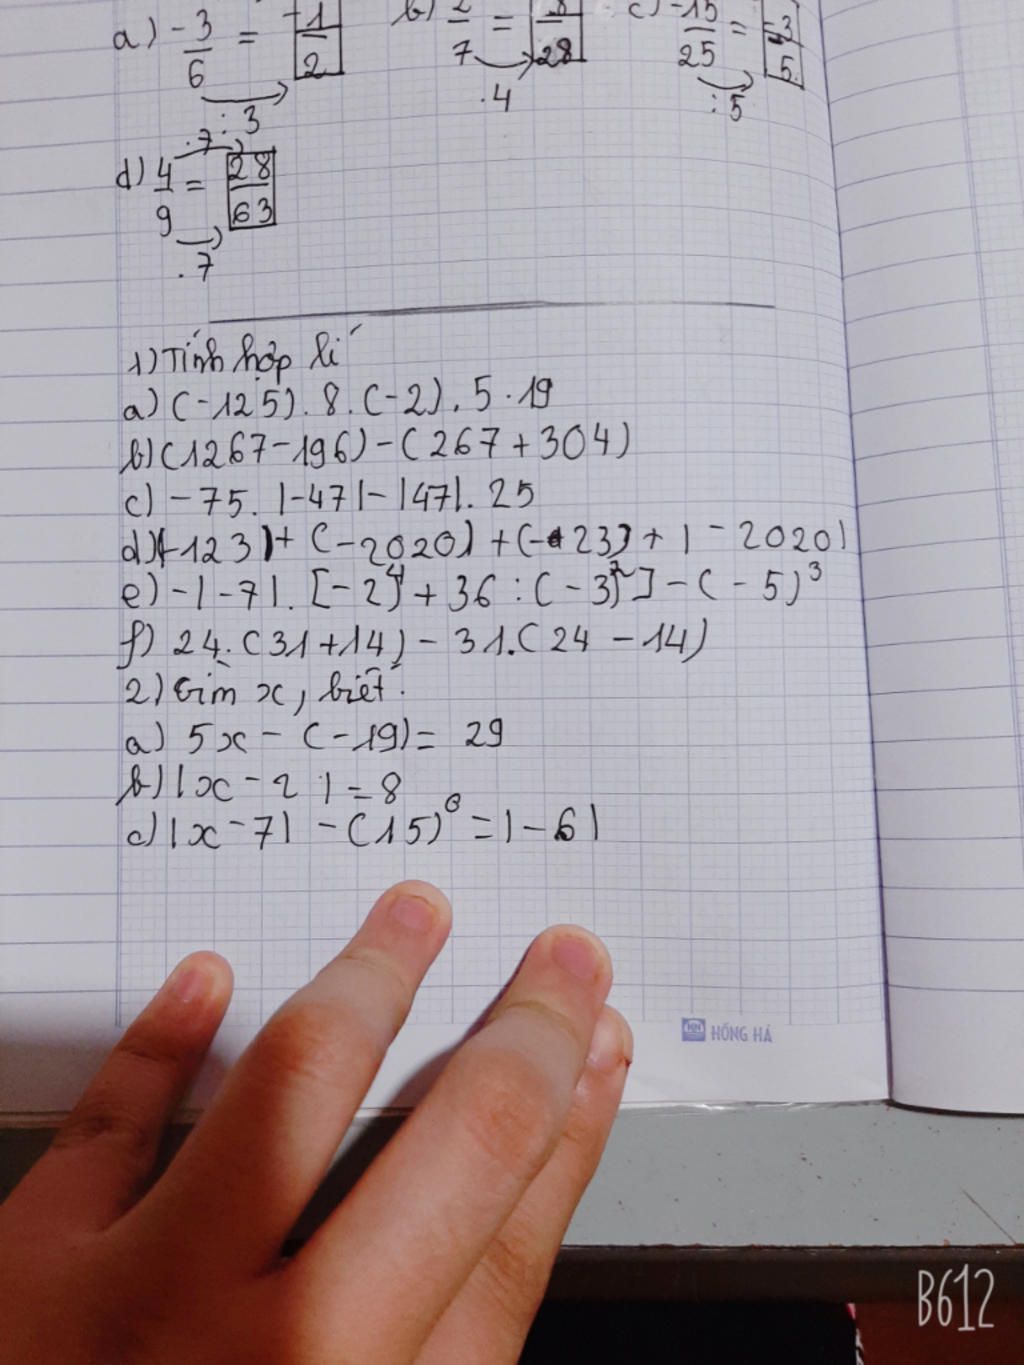 a) -3/6 = -1/2 b) 2/7 = 8/28 c) -15/25 = -3/5
: 3 . 4 : 5
. 7
d) 4/9 = 28/63
. 7
1) Tính hợp lí
a) (-125) . 8 . (-2) . 5 . 19
b) (1267 - 196) - (267 + 304)
c) - 75 . |-47| - |47| . 25
d) (-123) + (-2020) + (-23) + | - 2020|
e) - | - 7| . [-2)⁴ + 36 : (-3)² ] - ( - 5)³
f) 24 . (31 + 14) - 31 . (24 - 14)
2) Tìm x, biết:
a) 5x - (-19) = 29
b) |x - 2 | = 8
c) |x - 7| - (15)⁰ = | - 6 |
HN HỒNG HÀ
B612